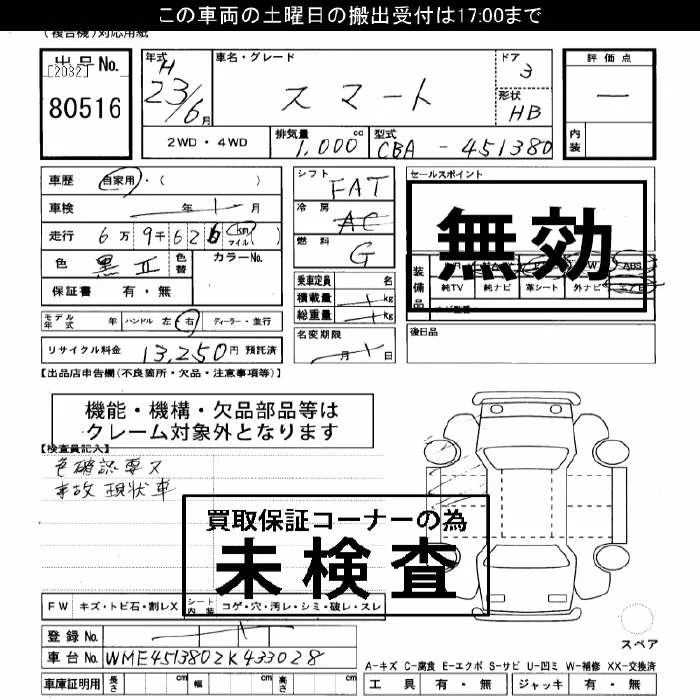 この車両の土曜日の搬出受付は17:00まで
(複合機)対応用紙
出品No.
[2032]
80516
年式
H
23/6月
車名・グレード
スマート
ドア
3
形状
HB
評価点
—
内装
2WD・4WD
排気量
1,000
cc
型式
CBA-451380
車歴 自家用・( )
車検 年 月
走行 6万9千626 km マイル ( )
色 黒II 色替 カラーNo.
保証書 有・無
モデル年式 年 ハンドル 左 右 ディーラー・並行
リサイクル料金 13,250円 預託済
シフト FAT
冷房 AC
燃料 G
乗車定員 名
積載量 kg
総重量 kg
名変期限
月 日
セールスポイント
無効
装備品 ABS
純TV 純ナビ 革シート 外ナビ エアB
後日品
【出品店申告欄(不良箇所・欠品・注意事項等)】
機能・機構・欠品部品等は
クレーム対象外となります
【検査員記入】
色確認要ス
事故現状車
買取保証コーナーの為
未検査
FW キズ・トビ石・割レX シート内装 コゲ・穴・汚レ・シミ・破レ・スレ
登録No.
車台No. WME4513802K433028
車庫証明用 長さ cm 幅 cm 高さ cm
スペア
A-キズ C-腐食 E-エクボ S-サビ U-凹ミ W-補修 XX-交換済
工具 有・無 ジャッキ 有・無